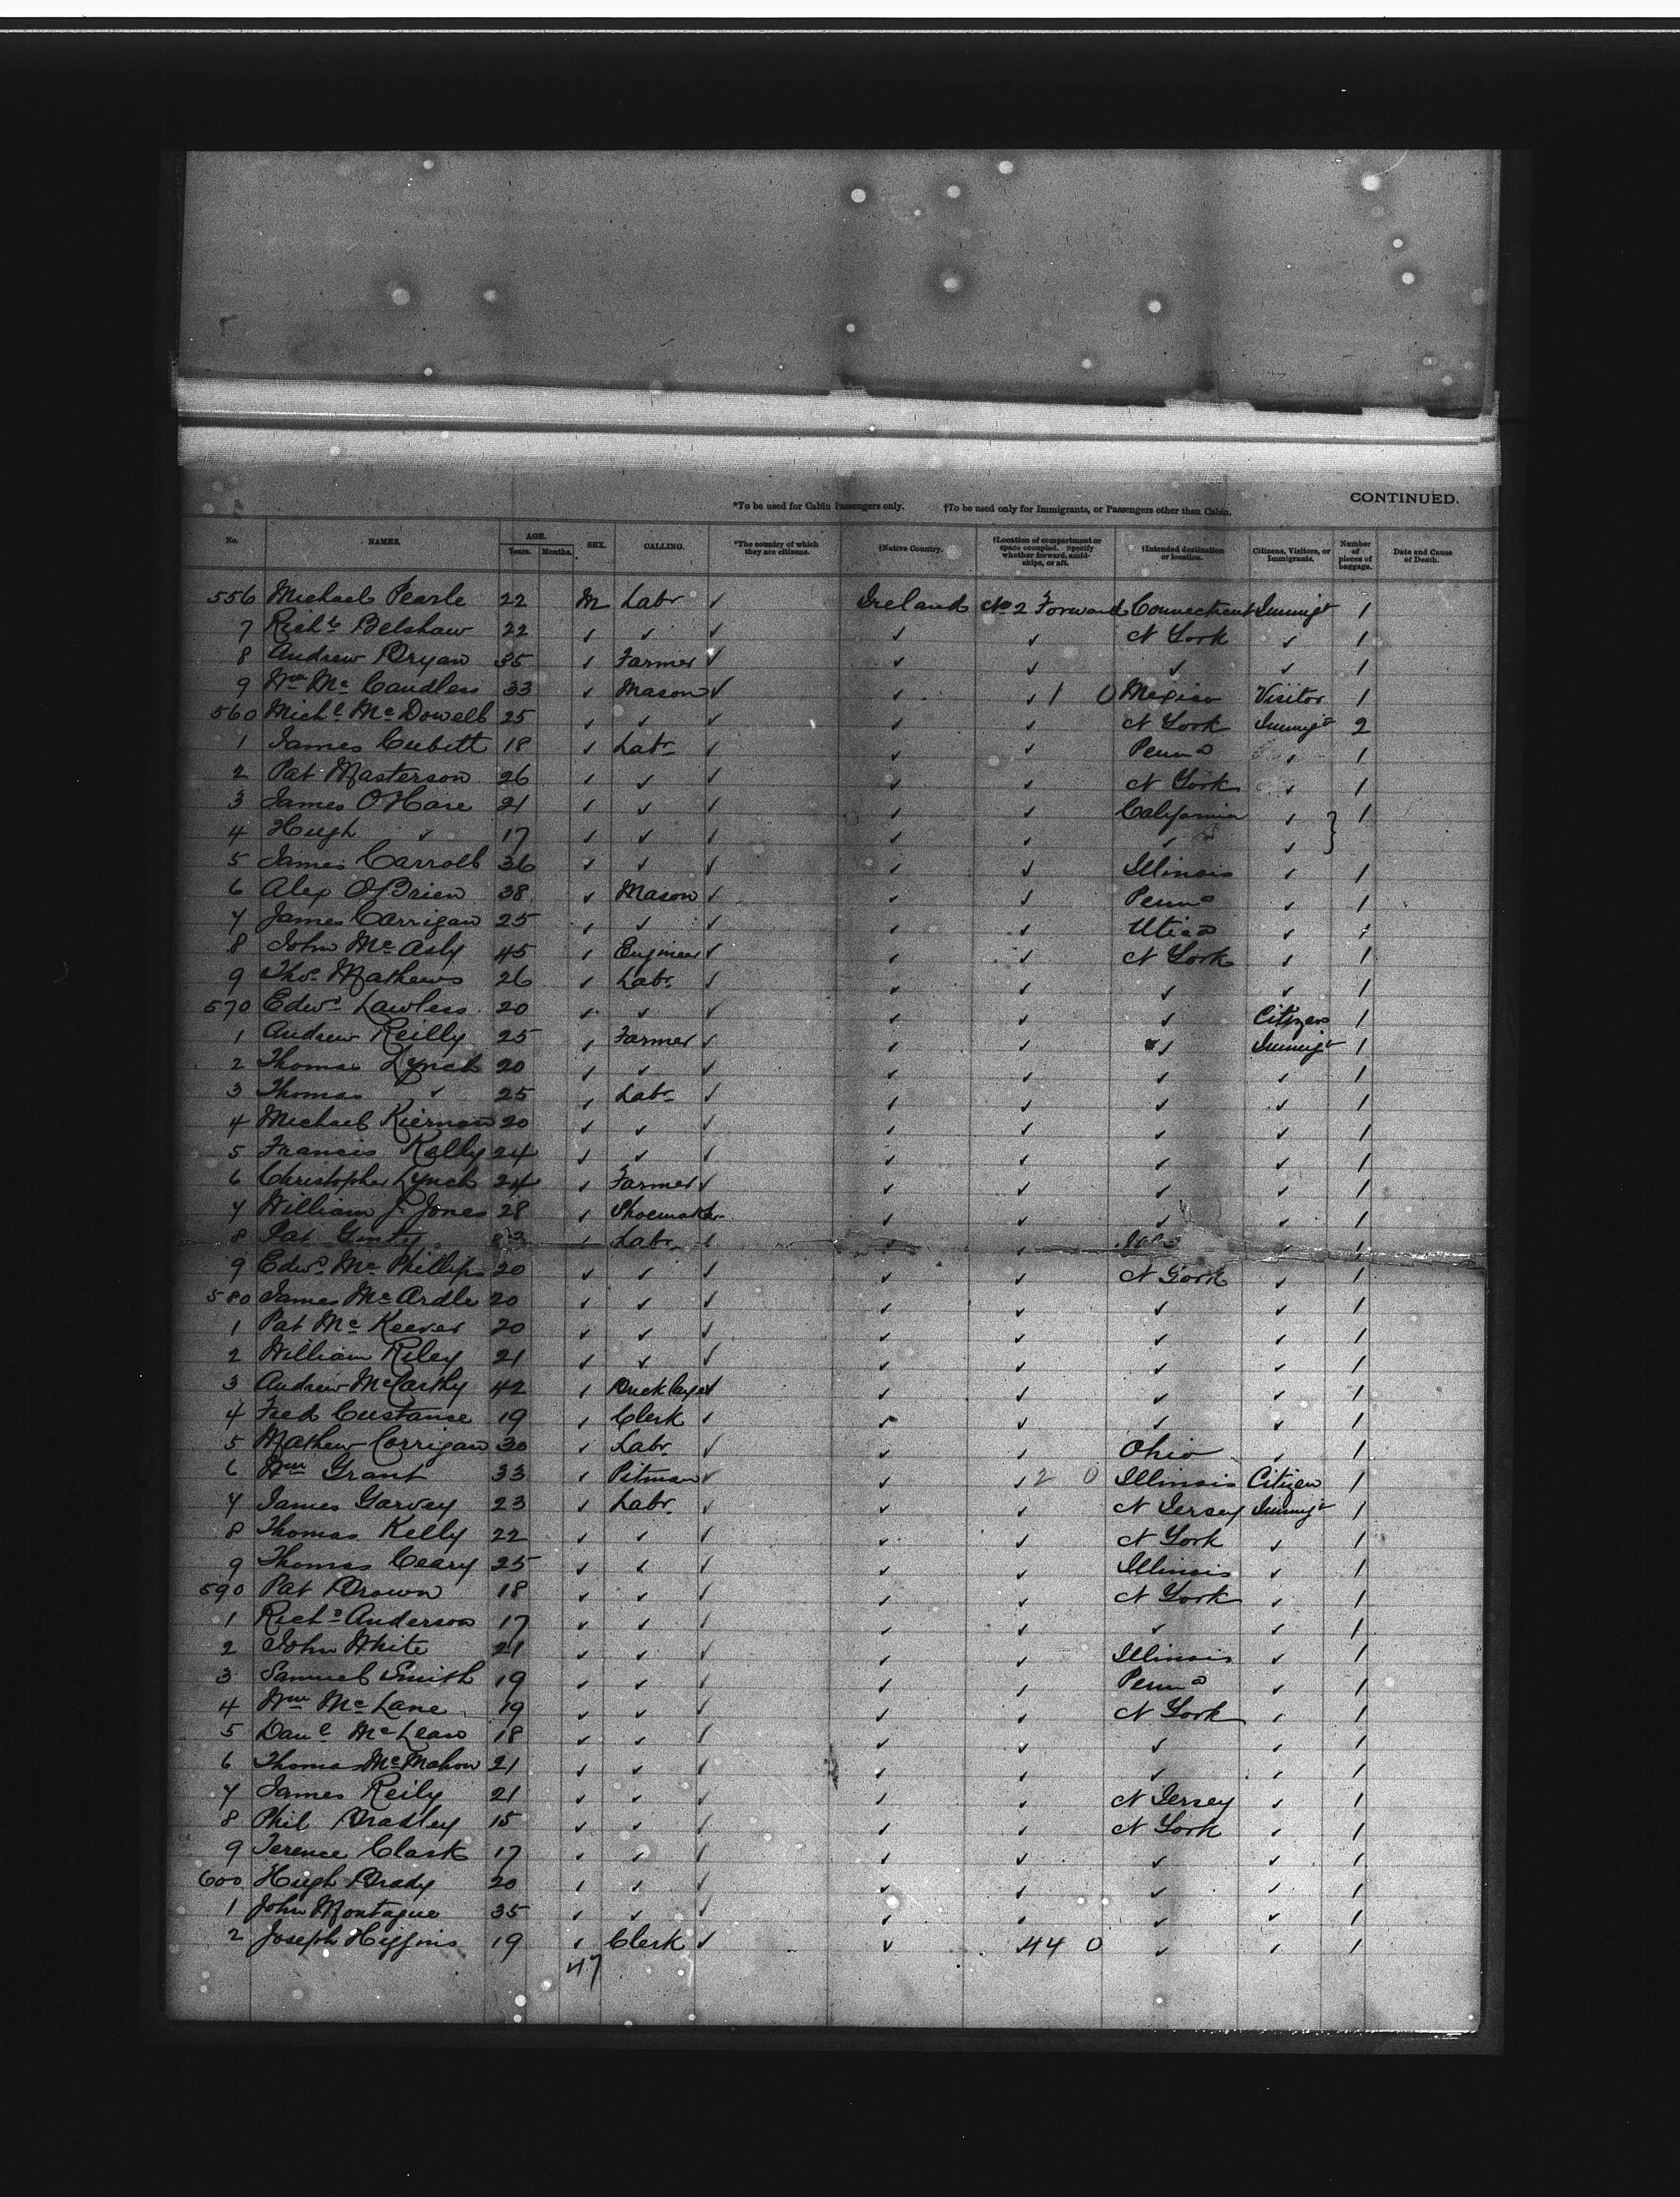 CONTINUED.
*To be used for Cabin Passengers only. †To be used only for Immigrants, or Passengers other than Cabin.
No. NAMES. AGE. Years. Months. SEX. CALLING. *The country of which they are citizens. †Native Country. †Location of compartment or space occupied. Specify whether forward, amidships, or aft. †Intended destination or location. Citizens, Visitors, or Immigrants. Number of pieces of baggage. Date and Cause of Death.
556 Michael Pearle 22 M Labr ✓ Ireland No 2 Forward Connecticut Immigt 1
7 Richd Belshaw 22 ✓ ✓ ✓ ✓ ✓ N York ✓ 1
8 Andrew Bryan 35 ✓ Farmer ✓ ✓ ✓ ✓ ✓ 1
9 Wm Mc Candless 33 ✓ Mason ✓ ✓ ✓ 1 0 Mexico Visitor 1
560 Michl Mc Dowell 25 ✓ ✓ ✓ ✓ ✓ N York Immigt 2
1 James Cubitt 18 ✓ Labr ✓ ✓ ✓ Penna ✓ 1
2 Pat Masterson 26 ✓ ✓ ✓ ✓ ✓ N York ✓ 1
3 James O'Hare 21 ✓ ✓ ✓ ✓ ✓ California ✓ } 1
4 Hugh ✓ 17 ✓ ✓ ✓ ✓ ✓ ✓ ✓
5 James Carroll 36 ✓ ✓ ✓ ✓ ✓ Illinois ✓ 1
6 Alex O'Brien 38 ✓ Mason ✓ ✓ ✓ Penna ✓ 1
7 James Carrigan 25 ✓ ✓ ✓ ✓ ✓ Utica ✓ 1
8 John Mc Asly 45 ✓ Engineer ✓ ✓ ✓ N York ✓ 1
9 Thos Mathews 26 ✓ Labr ✓ ✓ ✓ ✓ ✓ 1
570 Edwd Lawless 20 ✓ ✓ ✓ ✓ ✓ ✓ Citizen 1
1 Andrew Reilly 25 ✓ Farmer ✓ ✓ ✓ ✓ Immigt 1
2 Thomas Lynch 20 ✓ ✓ ✓ ✓ ✓ ✓ ✓ 1
3 Thomas ✓ 25 ✓ Labr ✓ ✓ ✓ ✓ ✓ 1
4 Michael Kiernan 20 ✓ ✓ ✓ ✓ ✓ ✓ ✓ 1
5 Francis Kelly 24 ✓ ✓ ✓ ✓ ✓ ✓ ✓ 1
6 Christopher Lynch 24 ✓ Farmer ✓ ✓ ✓ ✓ ✓ 1
7 William J. Jones 28 ✓ Shoemaker ✓ ✓ ✓ ✓ 1
8 Pat Ginty 23 ✓ Labr ✓ ✓ ✓ ✓ 1
9 Edwd Mc Phillips 20 ✓ ✓ ✓ ✓ ✓ N York ✓ 1
580 James Mc Ardle 20 ✓ ✓ ✓ ✓ ✓ ✓ ✓ 1
1 Pat Mc Keever 20 ✓ ✓ ✓ ✓ ✓ ✓ ✓ 1
2 William Riley 21 ✓ ✓ ✓ ✓ ✓ ✓ ✓ 1
3 Andrew McCarthy 42 ✓ Bricklayer ✓ ✓ ✓ ✓ ✓ 1
4 Fred Custanse 19 ✓ Clerk ✓ ✓ ✓ ✓ ✓ 1
5 Mathew Corrigan 30 ✓ Labr ✓ ✓ ✓ Ohio ✓ 1
6 Wm Grant 33 ✓ Pitman ✓ ✓ ✓ 2 0 Illinois Citizen 1
7 James Garvey 23 ✓ Labr ✓ ✓ ✓ N Jersey Immigt 1
8 Thomas Kelly 22 ✓ ✓ ✓ ✓ ✓ N York ✓ 1
9 Thomas Ceary 25 ✓ ✓ ✓ ✓ ✓ Illinois ✓ 1
590 Pat Brown 18 ✓ ✓ ✓ ✓ ✓ N York ✓ 1
1 Richd Anderson 17 ✓ ✓ ✓ ✓ ✓ ✓ ✓ 1
2 John White 21 ✓ ✓ ✓ ✓ ✓ Illinois ✓ 1
3 Samuel Smith 19 ✓ ✓ ✓ ✓ ✓ Penna ✓ 1
4 Wm Mc Lane 19 ✓ ✓ ✓ ✓ ✓ N York ✓ 1
5 Danl Mc Lean 18 ✓ ✓ ✓ ✓ ✓ ✓ ✓ 1
6 Thomas Mc Mahon 21 ✓ ✓ ✓ ✓ ✓ ✓ ✓ 1
7 James Reily 21 ✓ ✓ ✓ ✓ ✓ N Jersey ✓ 1
8 Phil Bradley 15 ✓ ✓ ✓ ✓ ✓ N York ✓ 1
9 Terence Clark 17 ✓ ✓ ✓ ✓ ✓ ✓ ✓ 1
600 Hugh Brady 20 ✓ ✓ ✓ ✓ ✓ ✓ ✓ 1
1 John Montague 35 ✓ ✓ ✓ ✓ ✓ ✓ ✓ 1
2 Joseph Higgins 19 ✓ Clerk ✓ ✓ 44 0 ✓ ✓ 1
47